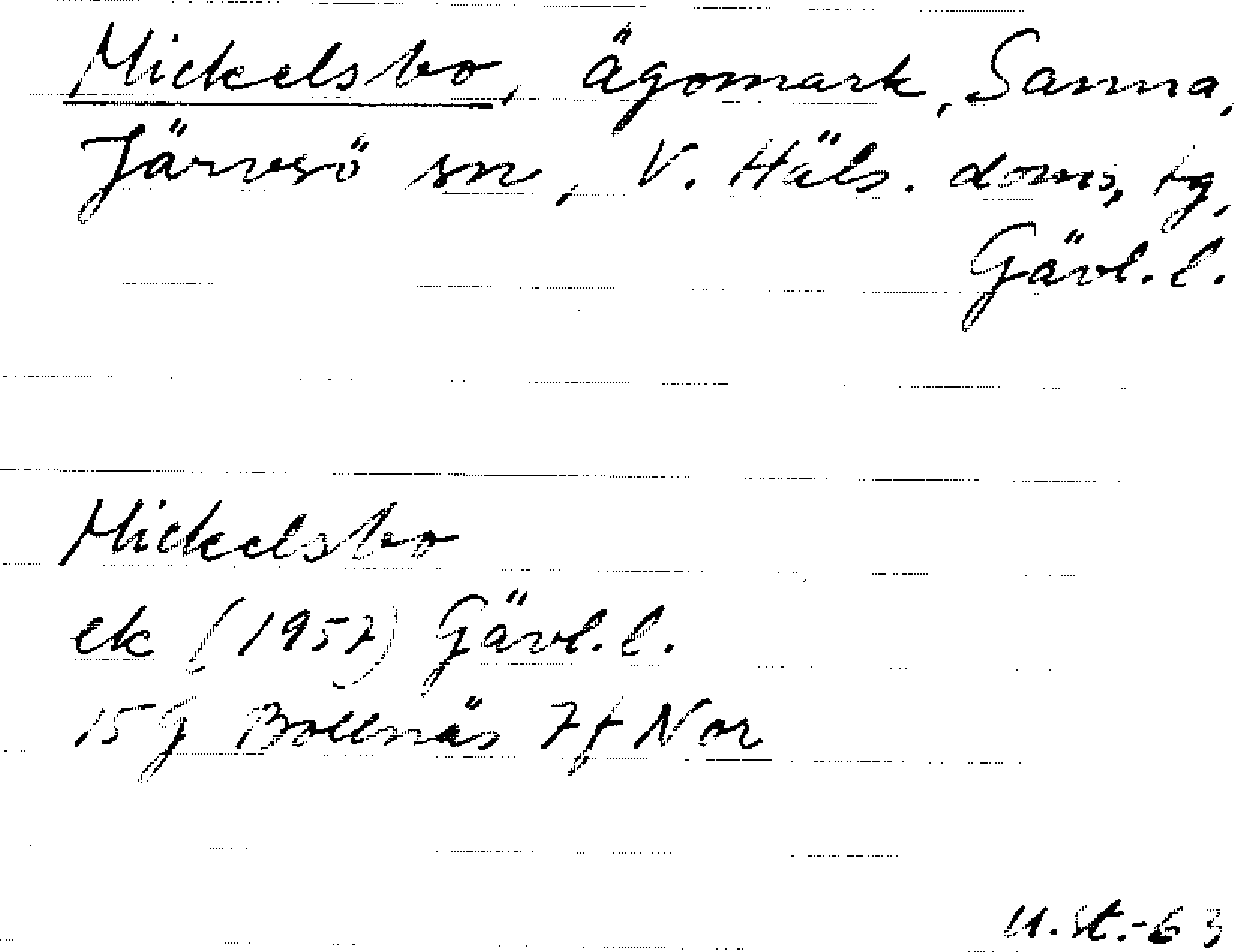 Mickelsbo, ägomark, Sanna,
Järvsö sn, V. Häls. doms, tg,
Gävl. l.
Mickelsbo
ek (1957) Gävl. l.
15 G Bollnäs 7f Nor
U.St.-63